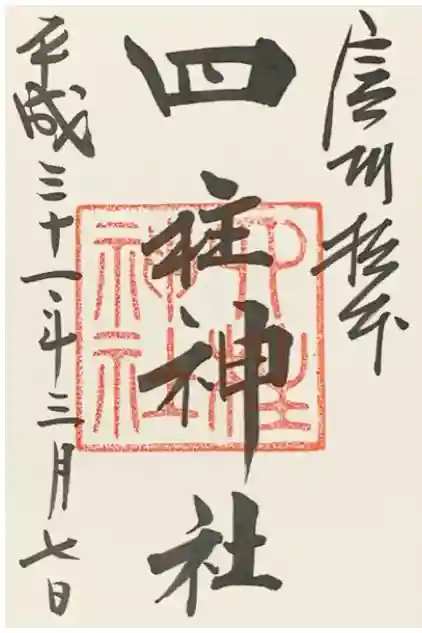 信州松本
四柱神社
四柱神社
平成三十一年三月七日